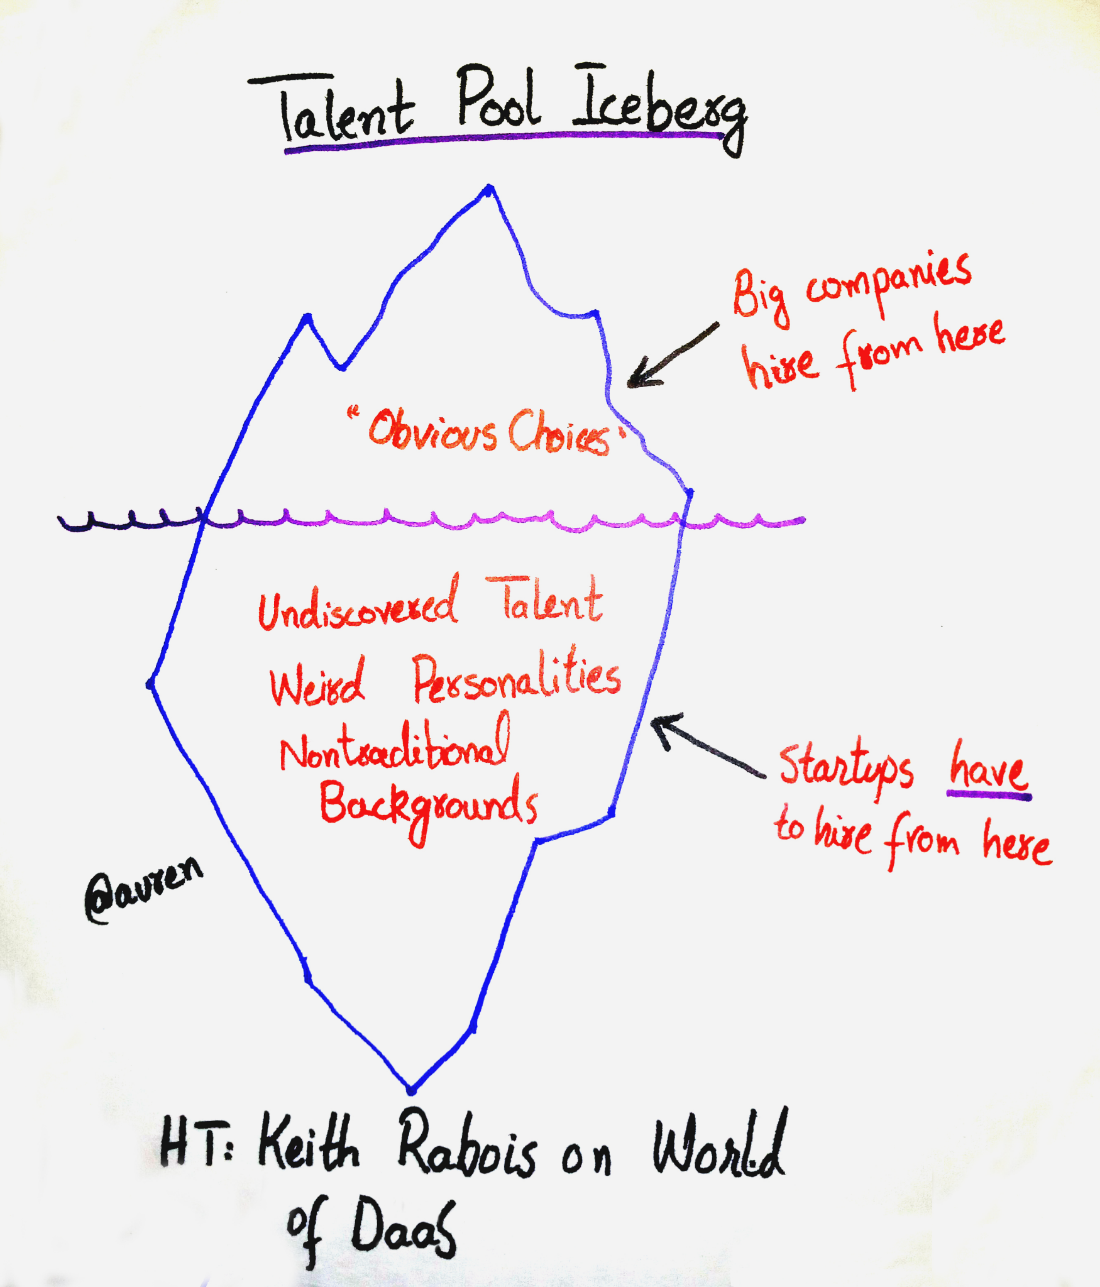 Talent Pool Iceberg
Big companies
hire from here
"Obvious Choices"
Undiscovered Talent
Weird Personalities
Nontraditional
Backgrounds
Startups have
to hire from here
@auren
HT: Keith Rabois on World
of DaaS